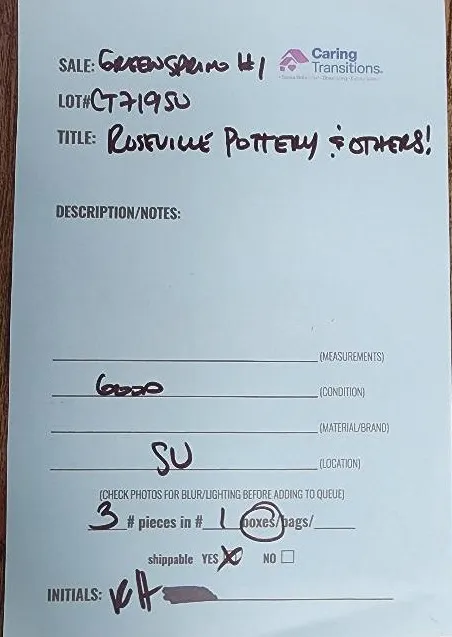 SALE: GREENSPRING #1
Caring
Transitions.
LOT# CT719SU
TITLE: ROSEVILLE POTTERY & OTHERS!
DESCRIPTION/NOTES:
(MEASUREMENTS)
GOOD (CONDITION)
(MATERIAL/BRAND)
SU (LOCATION)
(CHECK PHOTOS FOR BLUR/LIGHTING BEFORE ADDING TO QUEUE)
3 # pieces in # 1 boxes/bags/
shippable YES X NO
INITIALS: KH